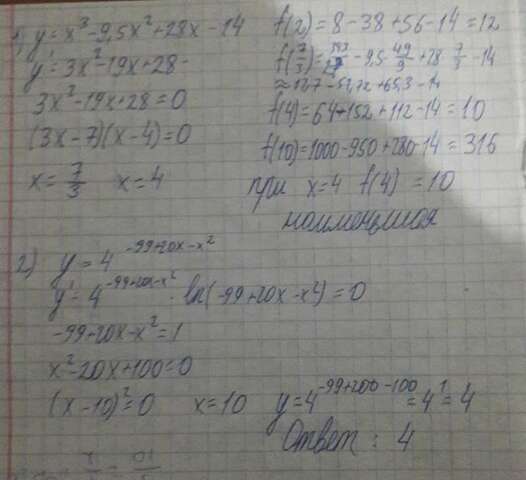 1) y = x³ - 9,5x² + 28x - 14
y' = 3x² - 19x + 28 -
3x² - 19x + 28 = 0
(3x - 7)(x - 4) = 0
x = 7/3 x = 4
f(2) = 8 - 38 + 56 - 14 = 12
f(7/3) = 343/27 - 9,5 · 49/9 + 28 · 7/3 - 14
≈ 12,7 - 51,72 + 65,3 - 14
f(4) = 64 - 152 + 112 - 14 = 10
f(10) = 1000 - 950 + 280 - 14 = 316
при x = 4 f(4) = 10
наименьшая
2) y = 4^(-99+20x-x²)
y' = 4^(-99+20x-x²) · ln(-99+20x-x²) = 0
-99+20x-x² = 1
x² - 20x + 100 = 0
(x - 10)² = 0 x = 10 y = 4^(-99+200-100) = 4¹ = 4
Ответ : 4